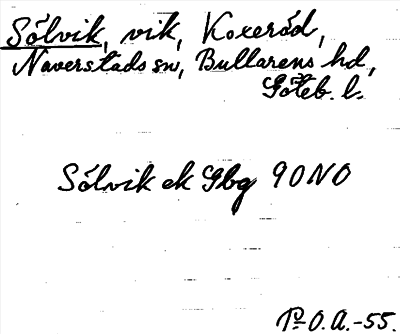 Sólvik, vik, Koxeród,
Naverstads sn, Bullarens hd,
Göteb. l.
Sólvik ek Gbg 90 NO
Pr O. A. -55.